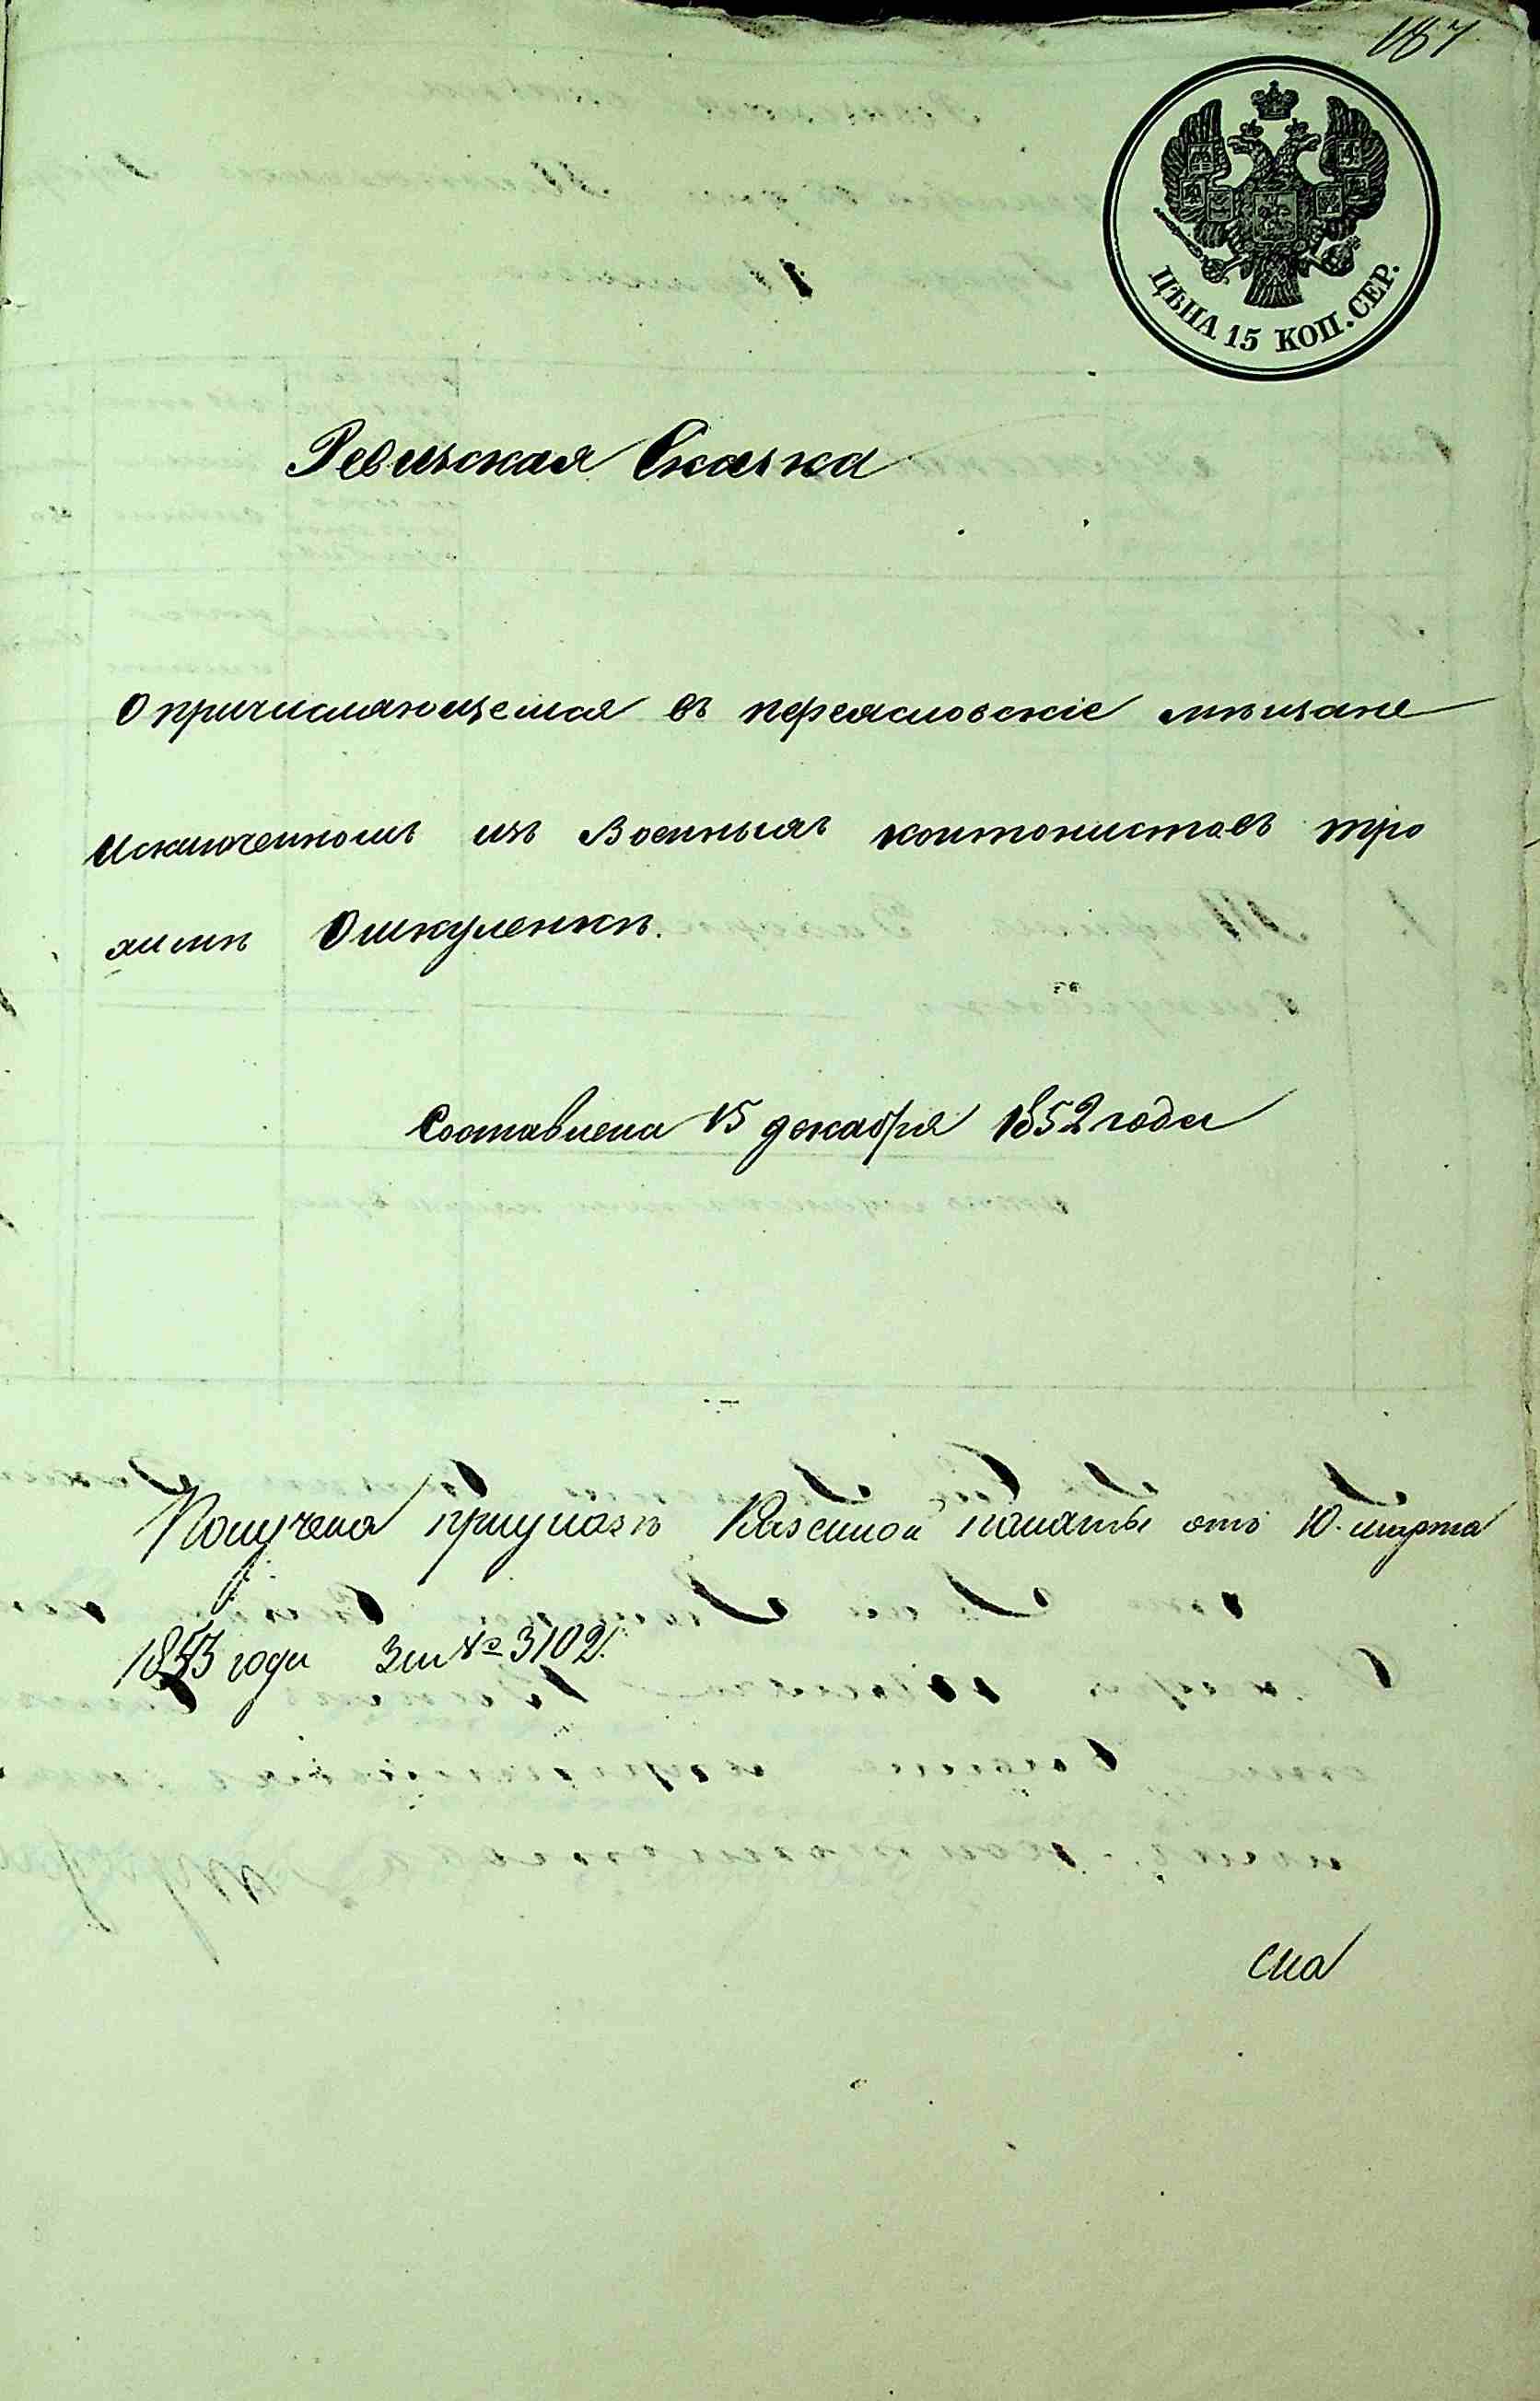 187
ЦѢНА 15 КОП. СЕР.
Ревизская Сказка
О причисляющемся въ переясловскіе мѣщане
Исключенномъ изъ Военныхъ контонистовъ тро
химѣ Ошкуленкѣ.
Составлена 15 декабря 1852 года
Получена Приуказѣ Казенной палаты отъ 10. марта
1853 года За № 3102.